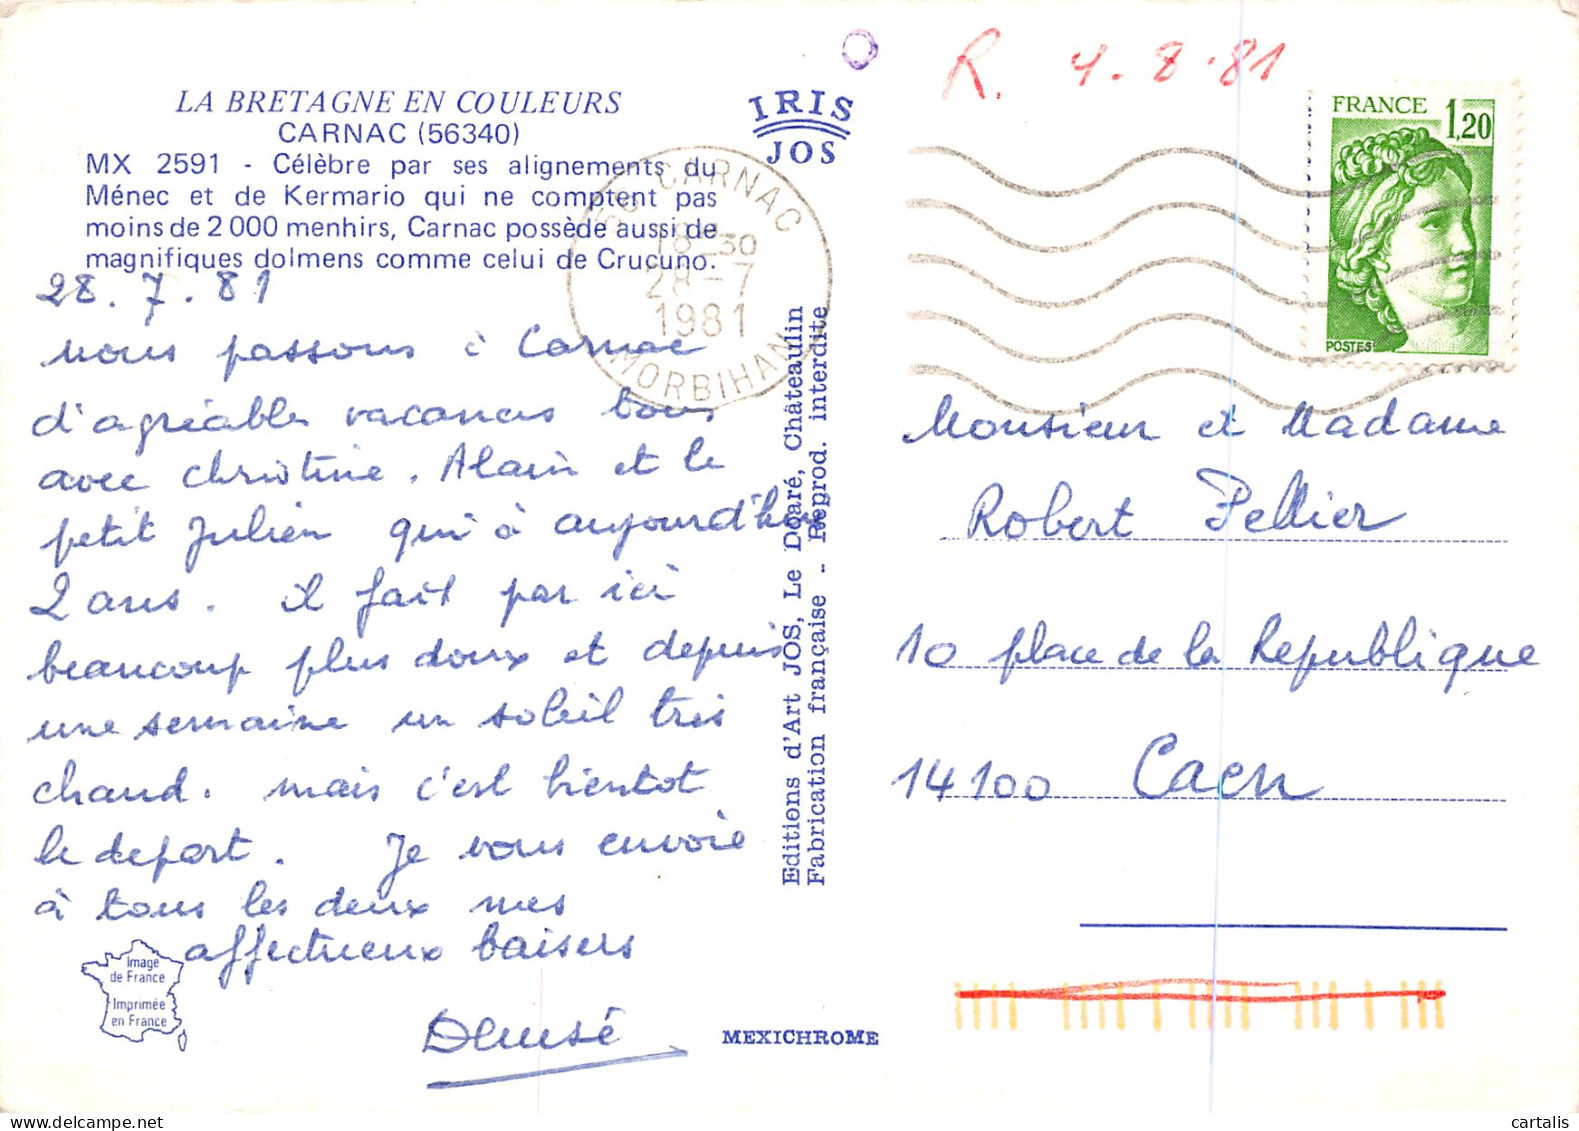 LA BRETAGNE EN COULEURS
CARNAC (56340)
MX 2591 - Célèbre par ses alignements du
Ménec et de Kermario qui ne comptent pas
moins de 2 000 menhirs, Carnac possède aussi de
magnifiques dolmens comme celui de Crucuno.
28.7.81
nous passons à Carnac
d'agréables vacances tous
avec Christine, Alain et le
petit Julien qui à aujourd'hui
2 ans. il fait par ici
beaucoup plus doux et depuis
une semaine un soleil très
chaud. mais c'est bientot
le depart. Je vous envoie
à tous les deux mes
affectueux baisers
Denise
Image
de France
Imprimée
en France
IRIS
JOS
56 CARNAC
18H30
28-7
1981
MORBIHAN
Editions d'Art JOS, Le Doaré, Châteaulin
Fabrication française - Reprod. interdite
MEXICHROME
R. 4.8.81
FRANCE 1,20
POSTES
Monsieur et Madame
Robert Pellier
10 place de la Republique
14100 Caen
cartalis | delcampe.net